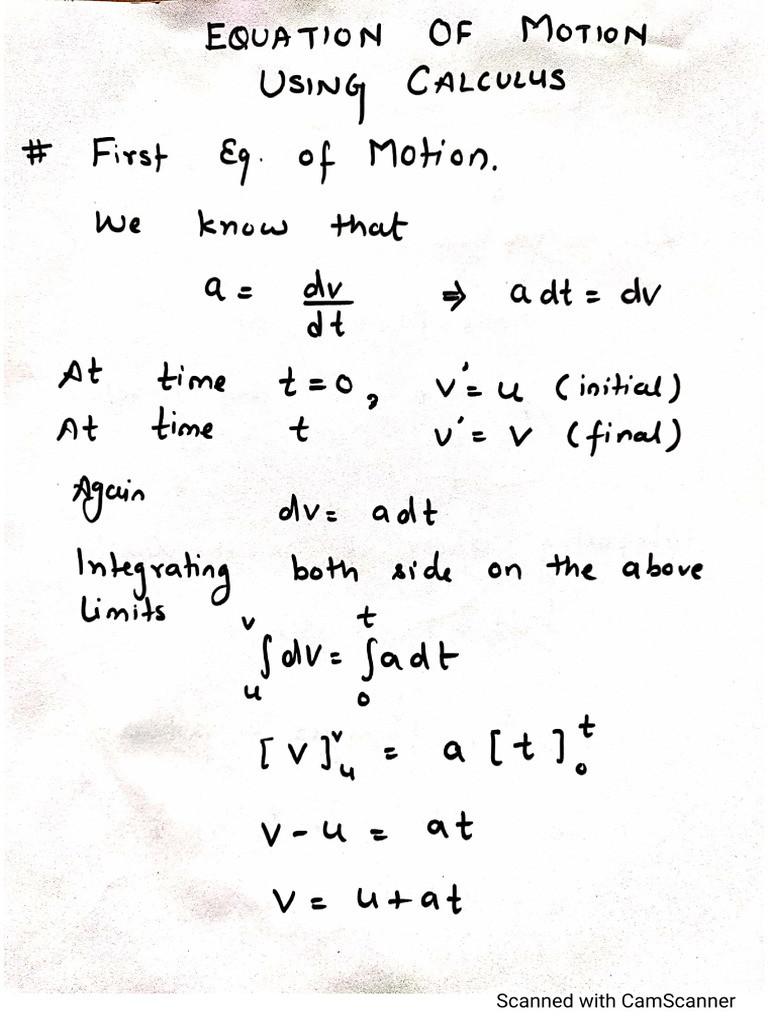 EQUATION OF MOTION
USING CALCULUS
# First Eq. of Motion.
We know that
a = dv/dt ⇒ a dt = dv
At time t = 0, v' = u (initial)
At time t v' = v (final)
Again
dv = a dt
Integrating both side on the above
limits
∫_u^v dv = ∫_0^t a dt
[v]_u^v = a [t]_0^t
v - u = at
v = u + at
Scanned with CamScanner